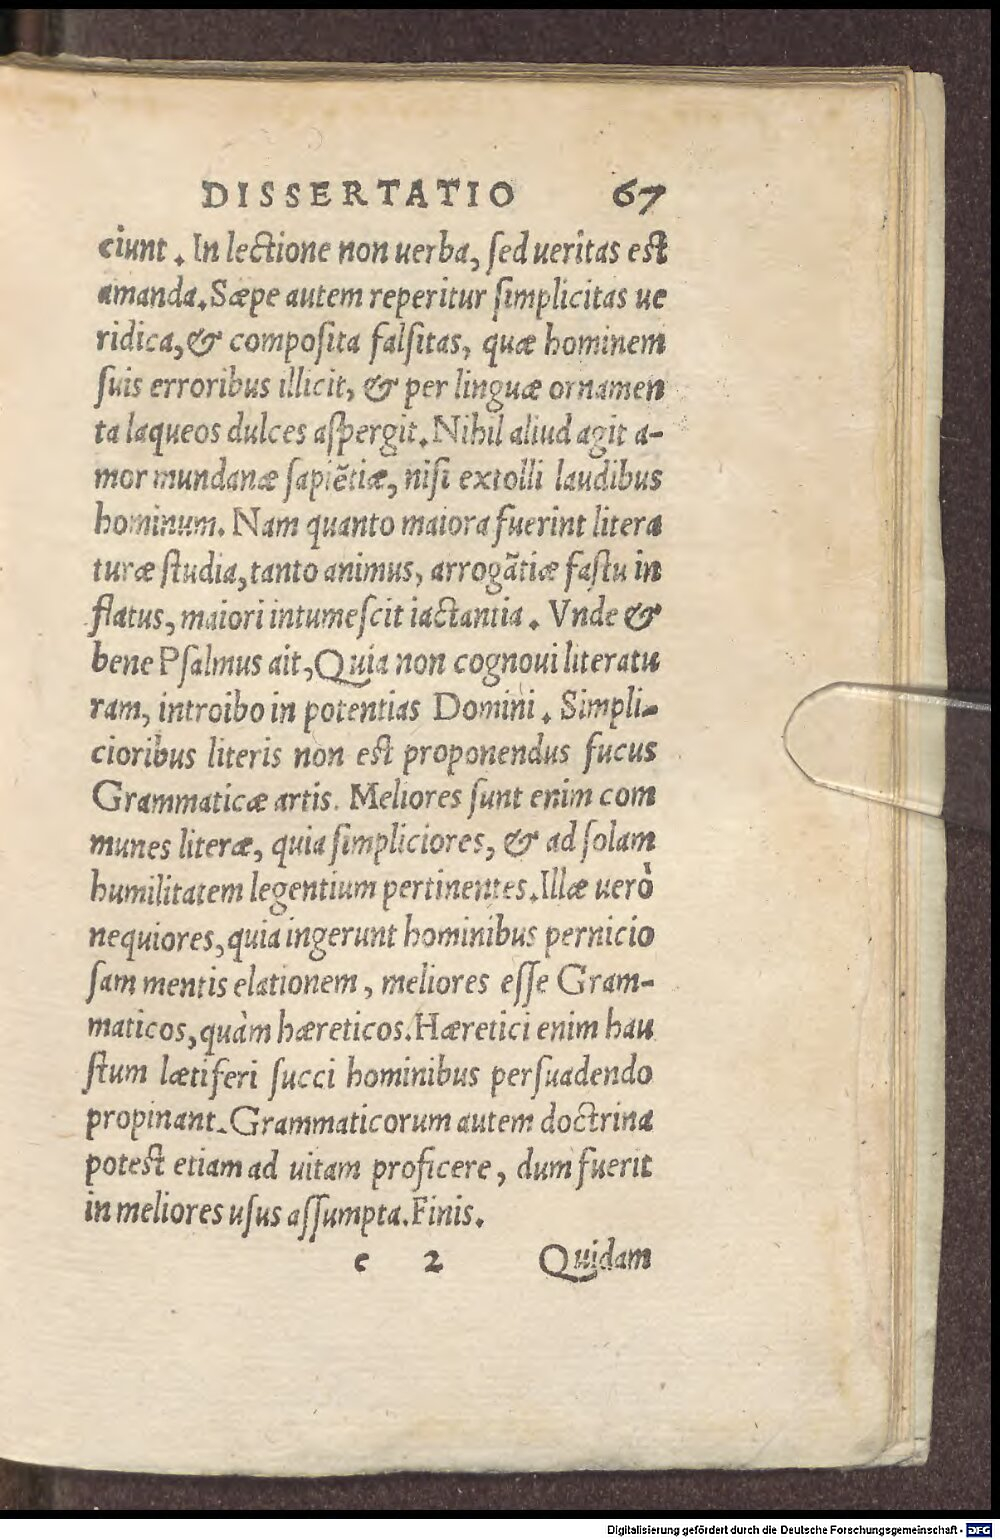 DISSERTATIO 67
ciunt. In lectione non uerba, ſed ueritas est
amanda. Sæpe autem reperitur ſimplicitas ue
ridica, & compoſita falſitas, quæ hominem
ſuis erroribus illicit, & per linguæ ornamen
ta laqueos dulces aſpergit. Nihil aliud agit a-
mor mundanæ ſapiẽtiæ, niſi extolli laudibus
hominum. Nam quanto maiora fuerint litera
turæ ſtudia, tanto animus, arrogãtiæ faſtu in
flatus, maiori intumeſcit iactantia. Vnde &
bene Pſalmus ait, Quia non cognoui literatu
ram, introibo in potentias Domini. Simpli-
cioribus literis non est proponendus fucus
Grammaticæ artis. Meliores ſunt enim com
munes literæ, quia ſimpliciores, & ad ſolam
humilitatem legentium pertinentes. Illæ uerò
nequiores, quia ingerunt hominibus pernicio
ſam mentis elationem, meliores eſſe Gram-
maticos, quàm hæreticos. Hæretici enim hau
ſtum lætiferi ſucci hominibus perſuadendo
propinant. Grammaticorum autem doctrina
potest etiam ad uitam proficere, dum fuerit
in meliores uſus aſſumpta. Finis.
c 2 Quidam
Digitalisierung gefördert durch die Deutsche Forschungsgemeinschaft - DFG